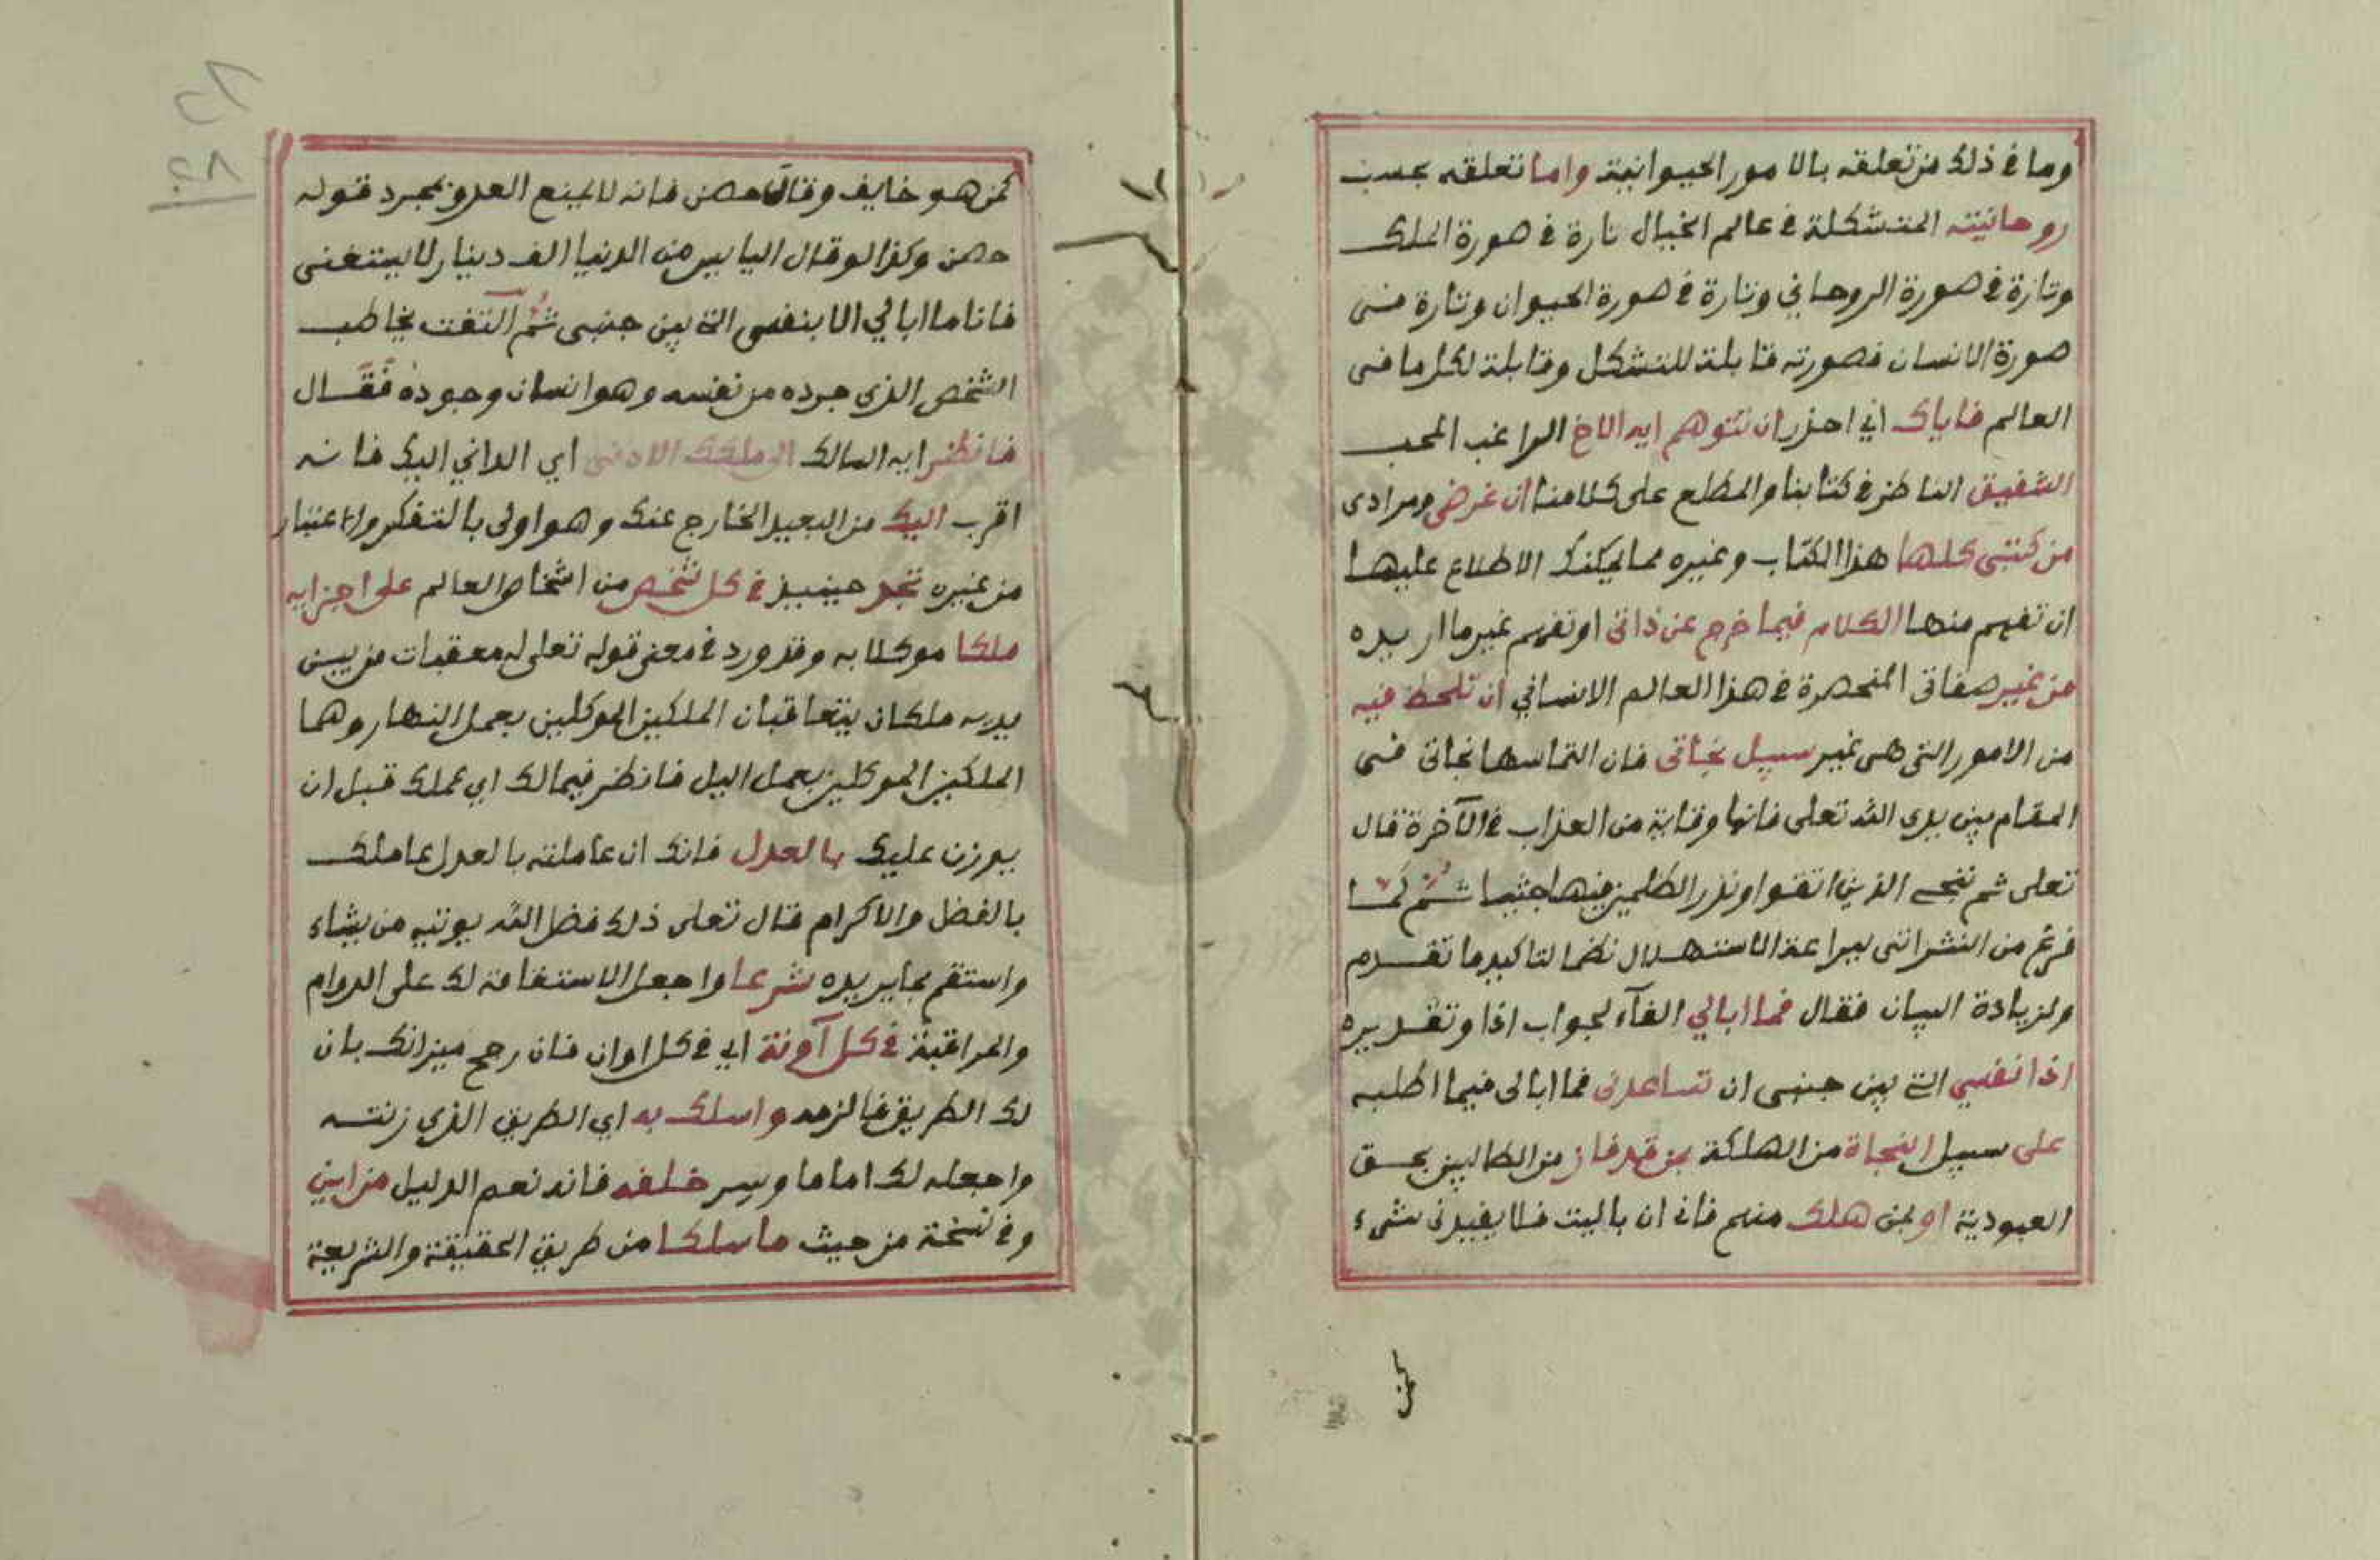 وما في ذلك من تعلقه بالامور الحيوانية واما تعلقه بحسب
روحانيته المتشكلة في عالم الخيال تارة في صورة الملك
وتارة في صورة الروحاني وتارة في صورة الحيوان وتارة في
صورة الانسان فصورته قابلة للتشكل وقابلة لكل ما في
العالم فاياك اي احذر ان تتوهم ايه الاخ الراغب المحب
الشفيق الناظر في كتابنا والمطلع على كلامنا ان غرضي ومرادي
من كتبي كلها هذا الكتاب وغيره مما يمكنك الاطلاع عليها
ان تفهم منها الكلام فيما خرج عن ذاتي او تفهم غير ما اريده
من غير صفاتي المنحصرة في هذا العالم الانساني ان تلحظ فيه
من الامور التي هي غير سبيل نجاتي فان التماسها نجاتي في
المقام بين يدى الله تعلى فانها وقاية من العذاب في الآخرة قال
تعلى ثم ننجي الذين اتقوا ونذر الظلمين فيها جثيا ثم لما
فرغ من النثر اتى ببراعة الاستهلال نظما لتاكيد ما تقدم
ولزيادة البيان فقال فما ابالي الفآء لجواب اذا وتقديره
اذا نفسي التي بين جنبي ان تساعدني فما ابالى فيما اطلبه
على سبيل النجاة من الهلكة بمن قد فاز من الطالبين بحق
العبودية او بمن هلك منهم فاني ان باليت فلا يفيدني شىء
كمن
كمن هو خايف وقال حصن فانه لا يمنع العدو بمجرد قوله
حصن وكذا لو قال اليايس من الدنيا الف دينار لا يستغنى
فانا ما ابالي الا بنفسى التي بين جنبى ثم التفت يخاطب
الشخص الذي جرده من نفسه وهو انسان وجوده فقال
فانظر ايه السالك الى ملكك الادنى اي الداني اليك فانه
اقرب اليك من البعيد الخارج عنك وهو اولى بالتفكر والاعتبار
من غيره تجد حينيذ في كل شخص من اشخاص العالم على اجزايه
ملكا موكلا به وقد ورد في معنى قوله تعلى له معقبات من بين
يديه ملكان يتعاقبان الملكين الموكلين بعمل النهار وهما
الملكين الموكلين بعمل اليل فانظر فيما لك اي عملك قبل ان
يوزن عليك بالعدل فانك ان عاملته بالعدل عاملك
بالفضل والاكرام قال تعلى ذلك فضل الله يوتيه من يشاء
واستقم بما يريده شرعا واجعل الاستقامة لك على الدوام
والمراقبة في كل آونة اي في كل اوان فان رجح ميزانك بان
لك الطريق فالزمه واسلك به اي الطريق الذي زنته
واجعله لك اماما وسر خلفه فانه نعم الدليل من اين
وفي نسخة من حيث ما سلكا من طريق الحقيقة والشريعة